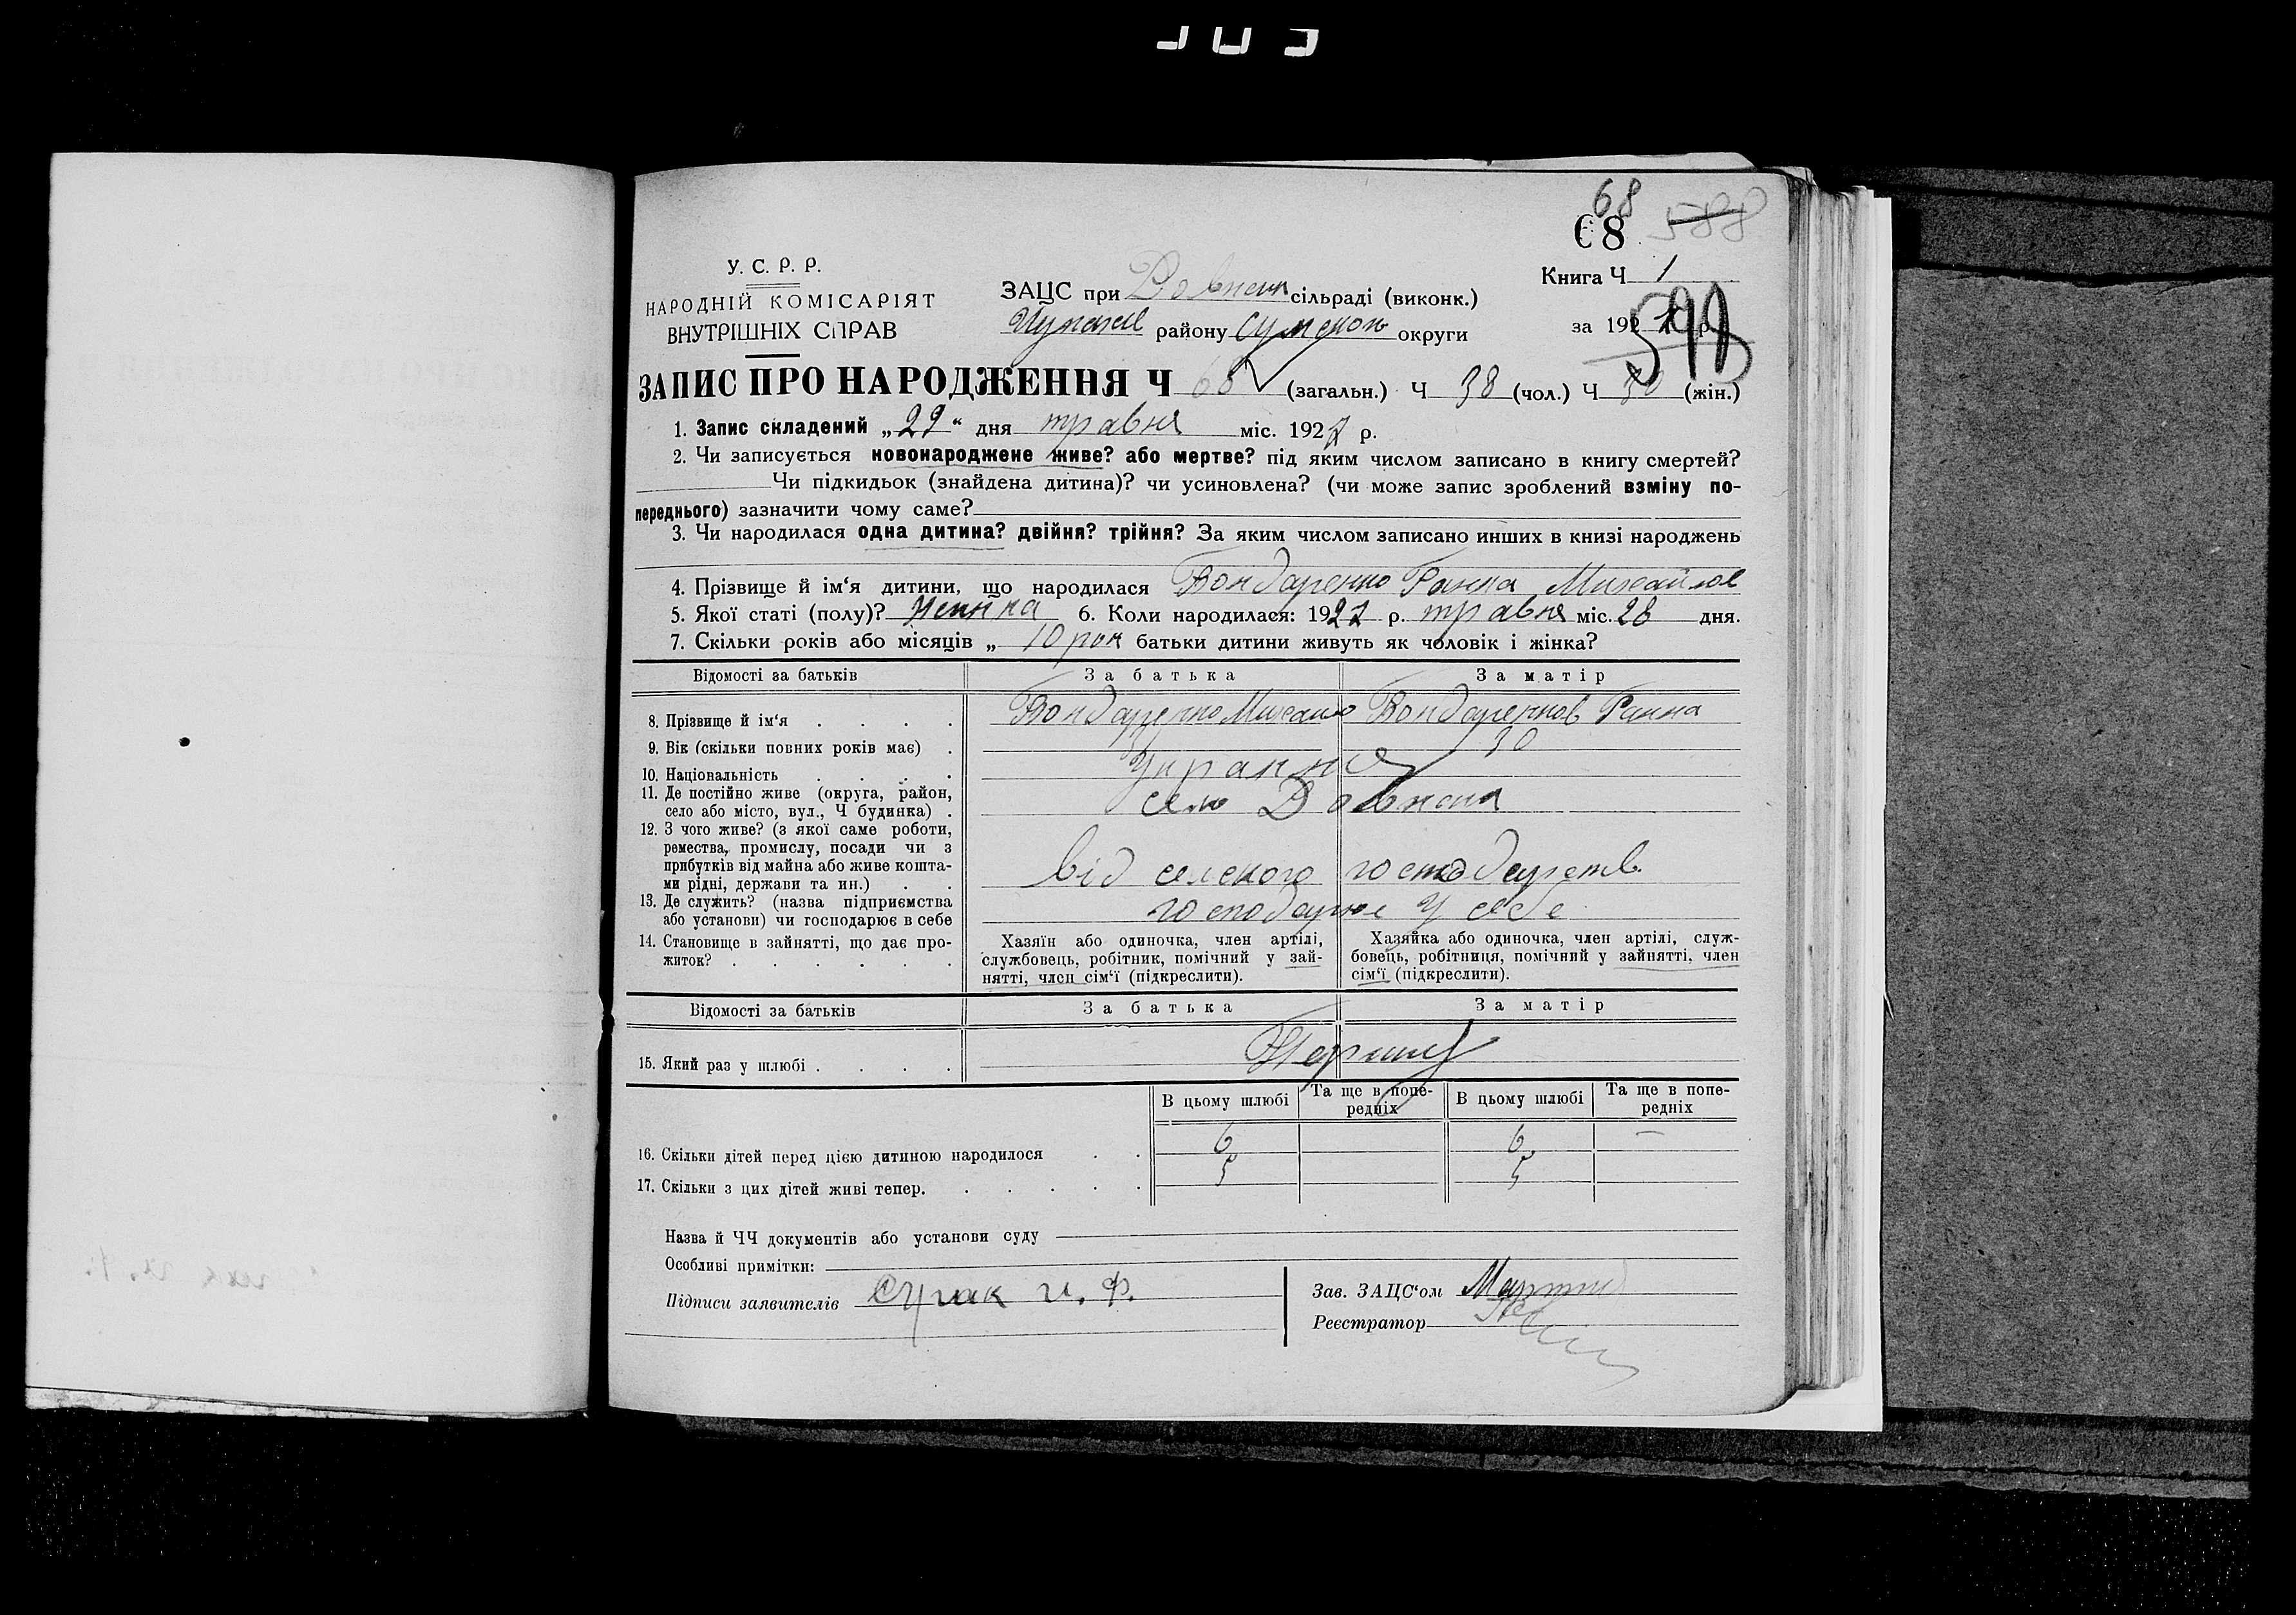 68
68 588
У. С. Р. Р.
НАРОДНІЙ КОМІСАРІЯТ
ВНУТРІШНІХ СПРАВ
ЗАЦС при сільраді (виконк.)
району Сумської округи
Книга Ч 1
за 192 р.
ЗАПИС ПРО НАРОДЖЕННЯ Ч 68 (загальн.) Ч 38 (чол.) Ч 30 (жін.)
1. Запис складений „29“ дня травня міс. 1927 р.
2. Чи записується новонароджене живе? або мертве? під яким числом записано в книгу смертей?
Чи підкидьок (знайдена дитина)? чи усиновлена? (чи може запис зроблений взміну по-
переднього) зазначити чому саме?
3. Чи народилася одна дитина? двійня? трійня? За яким числом записано инших в книзі народжень
4. Прізвище й ім‘я дитини, що народилася Бондаренко Ганна
5. Якої статі (полу)? 6. Коли народилася: 1927 р. травня міс. 28 дня.
7. Скільки років або місяців „ 10 рок батьки дитини живуть як чоловік і жінка?
Відомості за батьків За батька За матір
8. Прізвище й ім‘я . . . . Бондаренко Михайло Ганна
9. Вік (скільки повних років має) . 30
10. Національність . . . .
11. Де постійно живе (округа, район,
село або місто, вул., Ч будинка) . село
12. З чого живе? (з якої саме роботи,
ремества, промислу, посади чи з
прибутків від майна або живе кошта-
ми рідні, держави та ин.) . . від селского господарств
13. Де служить? (назва підприємства
або установи) чи господарює в себе господарює у себе
14. Становище в зайнятті, що дає про-
житок? . . . . . .
Хазяїн або одиночка, член артілі,
службовець, робітник, помічний у зай-
нятті, член сім‘ї (підкреслити).
Хазяйка або одиночка, член артілі, служ-
бовець, робітниця, помічний у зайнятті, член
сім‘ї (підкреслити).
Відомості за батьків За батька За матір
15. Який раз у шлюбі . . . .
В цьому шлюбі Та ще в попе-
редніх В цьому шлюбі Та ще в попе-
редніх
16. Скільки дітей перед цією дитиною народилося . . 6 6 —
17. Скільки з цих дітей живі тепер. . . . . . 5 5
Назва й ЧЧ документів або установи суду
Особливі примітки:
Підписи заявителів
Зав. ЗАЦС‘ом
Реєстратор